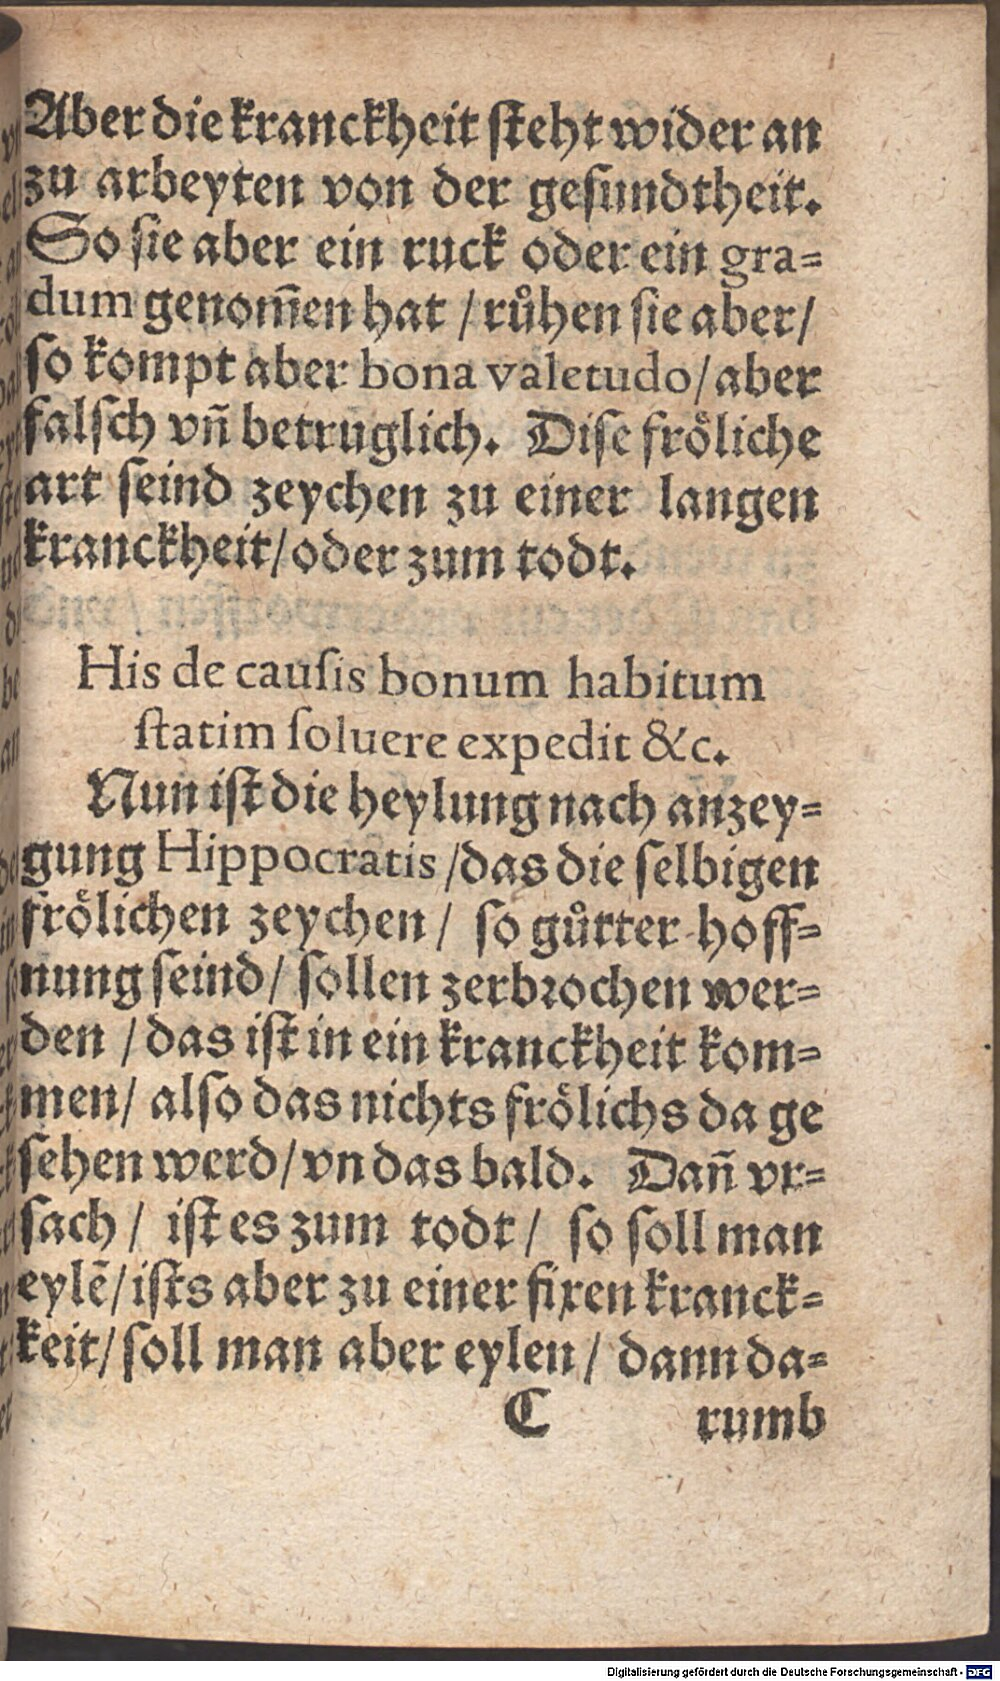 Aber die kranckheit steht wider an
zu arbeyten von der gesundtheit.
So sie aber ein ruck oder ein gra=
dum genom̄en hat / růhen sie aber/
so kompt aber bona valetudo/aber
falsch vn̄ betruglich. Dise froͤliche
art seind zeychen zu einer langen
kranckheit/oder zum todt.
His de cauſis bonum habitum
ſtatim ſoluere expedit &c.
Nun ist die heylung nach anzey=
gung Hippocratis /das die selbigen
froͤlichen zeychen / so gůtter hoff=
nung seind/ sollen zerbrochen wer=
den / das ist in ein kranckheit kom=
men/ also das nichts froͤlichs da ge
sehen werd/vn das bald. Dan̄ vr=
sach / ist es zum todt / so soll man
eylē/ists aber zu einer fixen kranck=
keit/soll man aber eylen / dann da=
C rumb
Digitalisierung gefördert durch die Deutsche Forschungsgemeinschaft - DFG